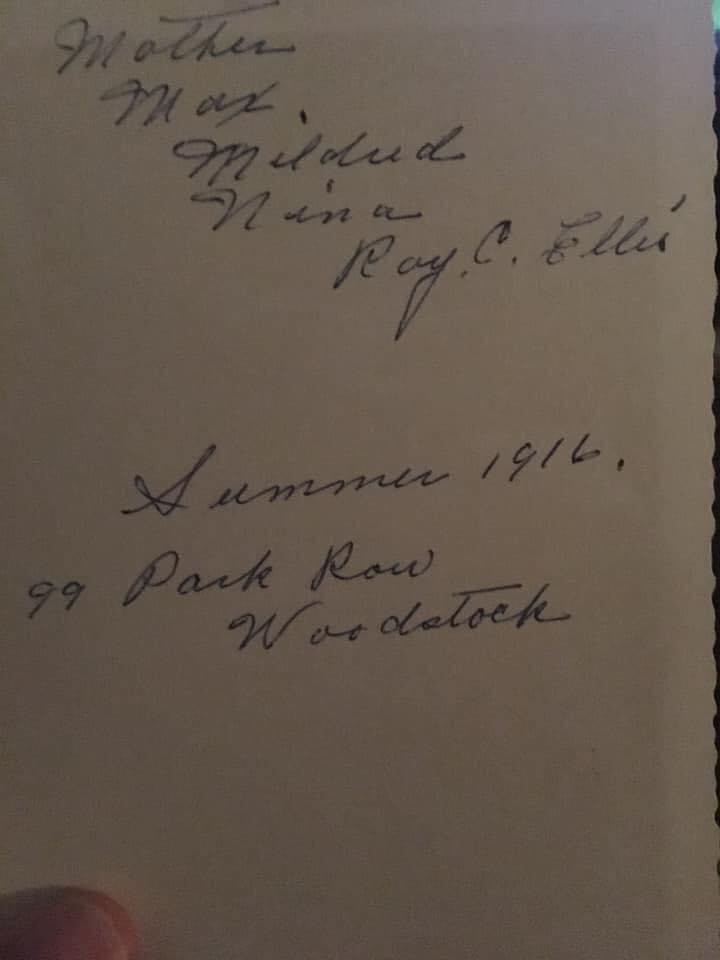 Mother
Max.
Mildred
Nina
Roy. C. Ellis
Summer 1916.
99 Park Row
Woodstock